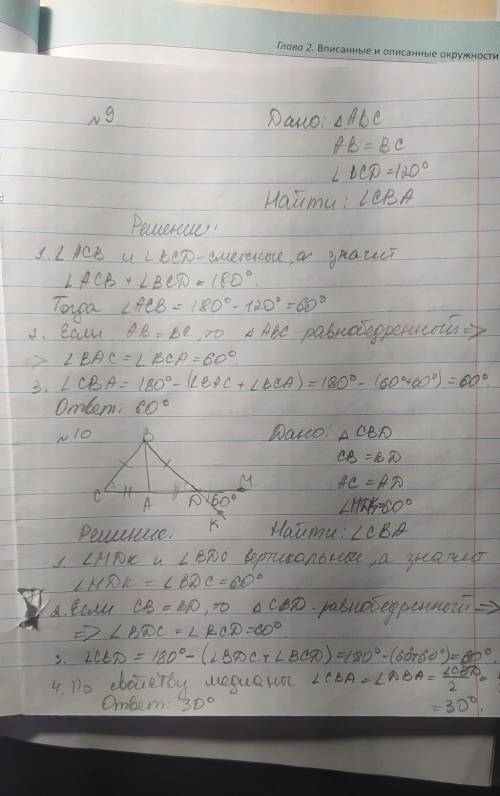 Глава 2. Вписанные и описанные окружности
№9
Дано: △ABC
AB = BC
∠BCD = 120°
Найти: ∠CBA
Решение:
1. ∠ACB и ∠BCD - смежные, а значит
∠ACB + ∠BCD = 180°.
Тогда ∠ACB = 180° - 120° = 60°
2. Если AB = BC, то △ABC - равнобедренный =>
=> ∠BAC = ∠BCA = 60°.
3. ∠CBA = 180° - (∠BAC + ∠BCA) = 180° - (60°+60°) = 60°
Ответ: 60°
№10
Дано: △CBD
CB = BD
AC = AD
∠MDK = 60°
Найти: ∠CBA
B
C
A
D
60°
M
K
Решение:
1. ∠MDK и ∠BDC вертикальные, а значит
∠MDK = ∠BDC = 60°
2. Если CB = BD, то △CBD - равнобедренный =>
=> ∠BDC = ∠BCD = 60°.
3. ∠CBD = 180° - (∠BDC + ∠BCD) = 180° - (60°+60°) = 60°.
4. По свойству медианы ∠CBA = ∠DBA = ∠CBD/2 =
= 30°.
Ответ: 30°